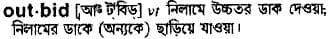 out·bid [আউট্‌ বিড্‌] vt নিলামে উচ্চতর ডাক দেওয়া;
নিলামের ডাকে (অন্যকে) ছাড়িয়ে যাওয়া।